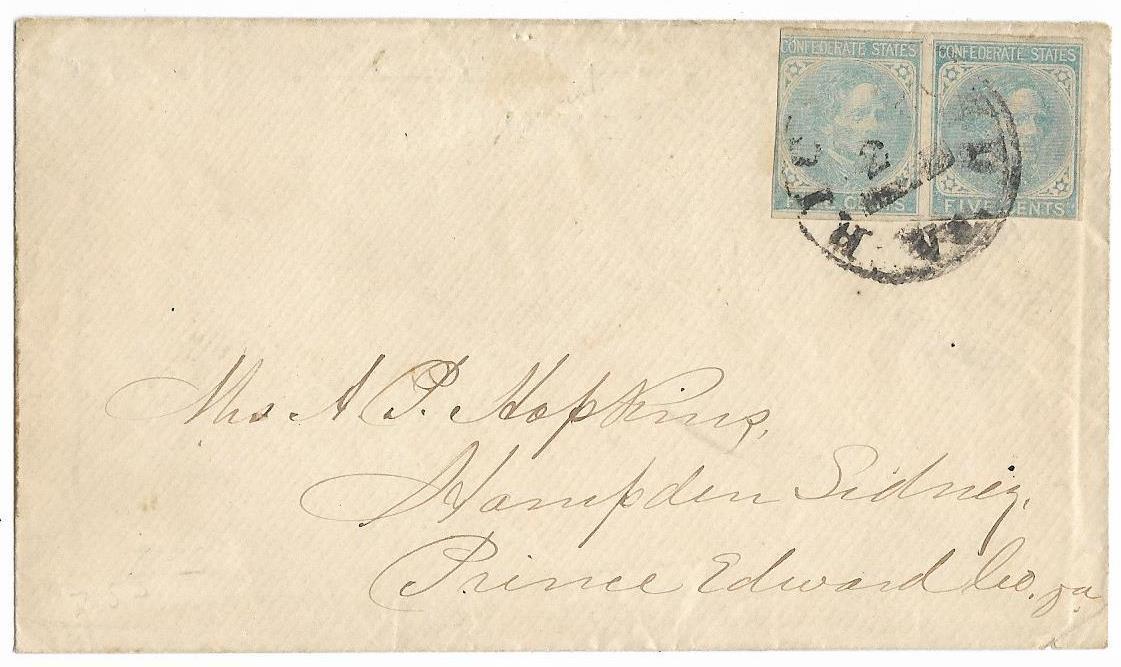 CONFEDERATE STATES CONFEDERATE STATES
CENTS FIVE CENTS
RIC
2
Mrs A P. Hopkins,
Hampden Sidney,
Prince Edward Co. Va